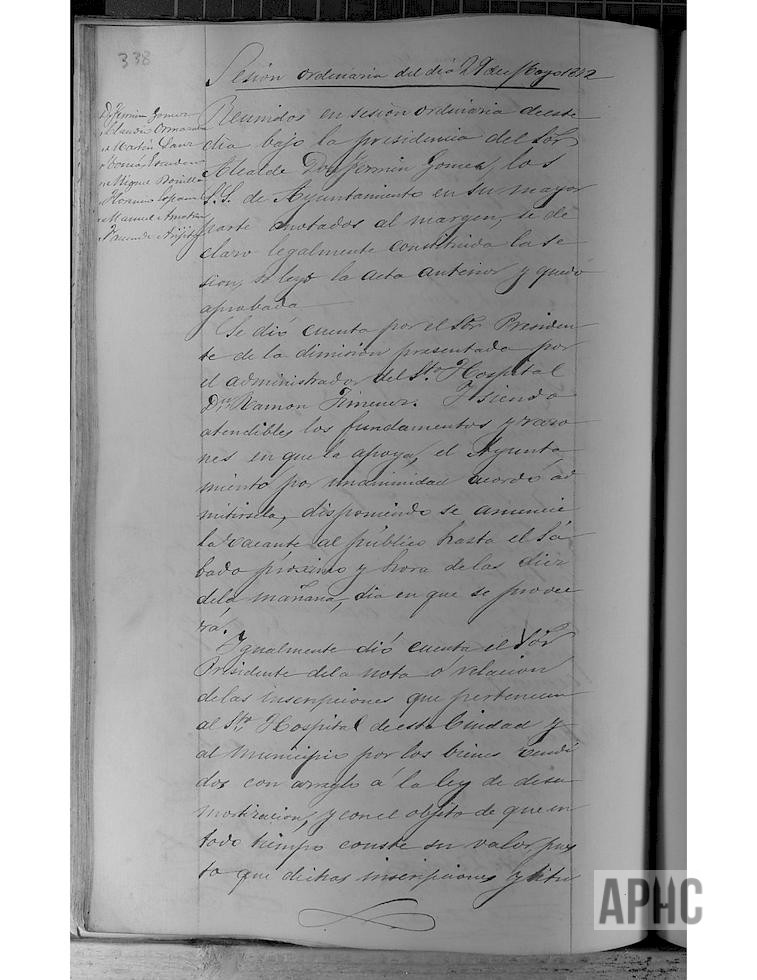 338
Sesion ordinaria del dia 29 de Mayo 1872
D. Fermin Gomez
" Claudio
" Martin Sanz
" Tomas Escudero
" Miguel Bonilla
" Manuel
" Facundo
Reunidos en sesion ordinaria de este
dia bajo la presidencia del Sõr
Alcalde Don Fermin Gomez, los
S.S. de Ayuntamiento en su mayor
parte anotados al margen, se de
claro legalmente constituida la se
sion, se leyo la acta anterior y quedo
aprobada
Se dió cuenta por el Sõr Presiden
te de la dimision presentada por
el administrador del Sto. Hospital
Dn. Ramon Jimenez. Y siendo
atendibles los fundamentos y razo
nes en que la apoya, el Ayunta
miento por unanimidad acordó ad
mitirsela, disponiendo se anuncie
la vacante al público hasta el Sá
bado próximo y hora de las diez
dela mañana, dia en que se provee
rá.
Igualmente dió cuenta el Sõr
Presidente dela nota ó relacion
delas inscripciones que pertenecen
al Sto. Hospital de esta Ciudad y
al Municipio por los bienes vendi
dos con arreglo á la ley de desa
mortizacion, y con el objeto de que en
todo tiempo conste su valor pues
to que dichas inscripciones y titu
APHC